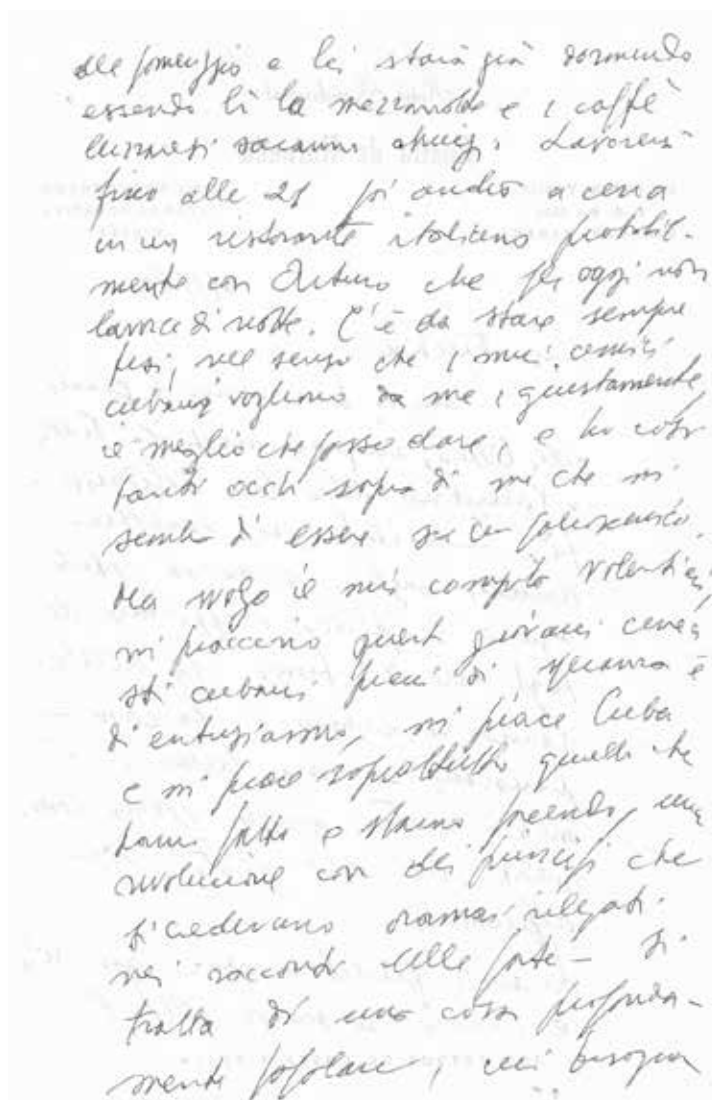 del pomeriggio e lei starà già dormendo
essendo lì la mezzanotte e i caffè
luzzaresi saranno chiusi. Lavorerò
fino alle 21 poi andrò a cena
in un ristorante italiano probabil-
mente con Arturo che per oggi non
lavora di notte. C'è da stare sempre
tesi, nel senso che i miei amici
cubani vogliono da me, giustamente,
il meglio che posso dare, e ho così
tanti occhi sopra di me che mi
sembra di essere su un palcoscenico.
Ma svolgo il mio compito volentieri,
mi piacciono questi giovani cinea-
sti cubani pieni di speranza e
di entusiasmo, mi piace Cuba
e mi piace soprattutto quello che
hanno fatto e stanno facendo, una
rivoluzione con dei principi che
si credevano oramai relegati
nei racconti delle fate - Si
tratta di una cosa profonda-
mente popolare, cui bisogna